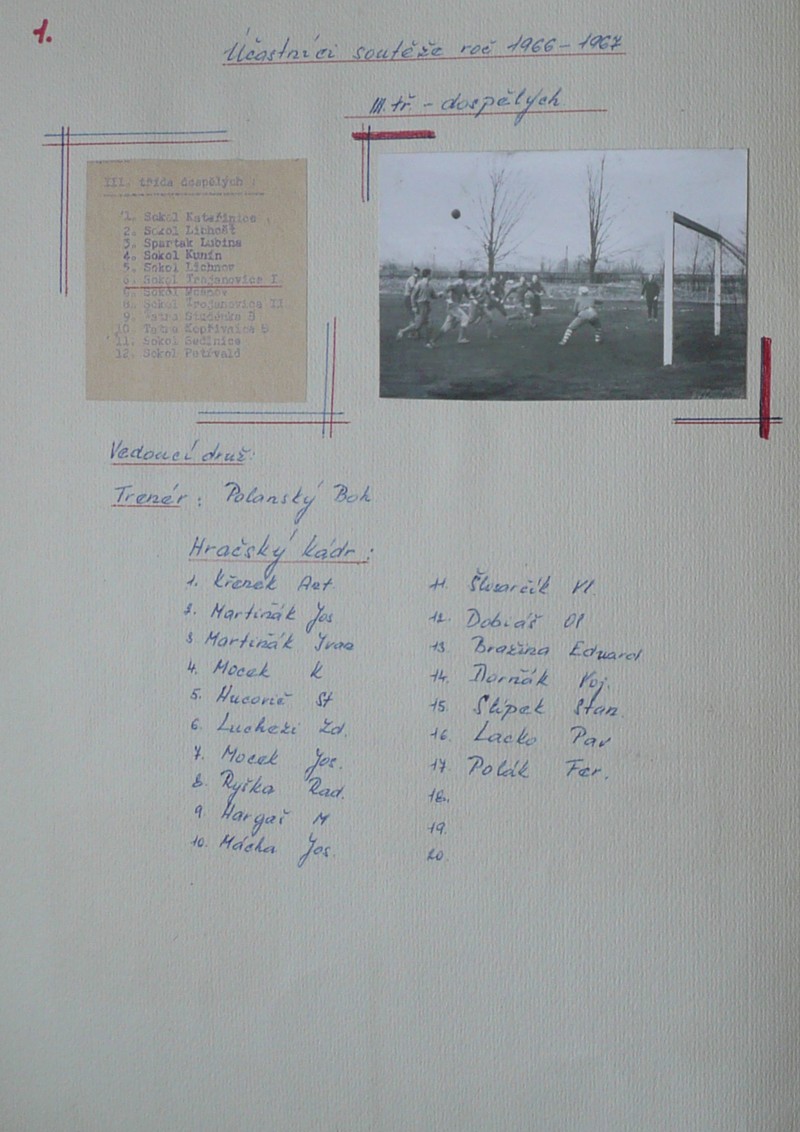 1.
Účastníci soutěže roč 1966-1967
III. tř. - dospělých
III. třída dospělých :
1. Sokol Kateřinice
2. Sokol Libhošť
3. Spartak Lubina
4. Sokol Kunín
5. Sokol Lichnov
6. Sokol Trojanovice I.
8. Sokol Trojanovice II.
9. Tatra Studénka B
10. Tatra Kopřivnice B
11. Sokol Sedlnice
12. Sokol Petřvald
Vedoucí druž:
Trenér : Polanský Boh
Hračský kádr :
1. Křenek Ant
2. Martiňák Jos
3 Martiňák Ivan
4. Mocek K
5. Hucovič St
6. Luchezi Zd.
7. Mocek Jos.
8. Ryška Rad.
9. Hargaš M
10. Mácha Jos.
11. Šlusarčík Vl.
12. Dobiáš Ol
13. Bražina Eduard
14. Dorňák Voj.
15. Slípek Stan.
16. Lacko Pav
17. Polák Fer.
18.
19.
20.